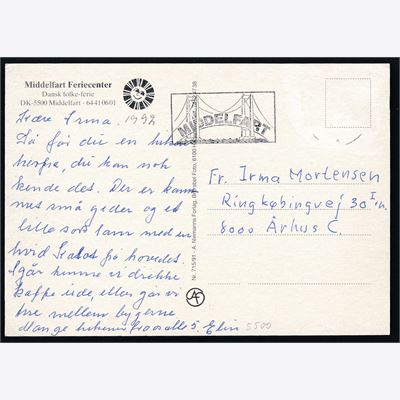 Middelfart Feriecenter
Dansk folke-ferie
DK-5500 Middelfart - 64410601
Kære Irma. 1992
Så får du en hilsen
herfra, du kan nok
kende det. Der er kommet
små geder og et
lille sort lam med en
hvid Kalot på hovedet.
Igår hjemme er drikke
kaffe ude, ellers går vi
ture mellem bygerne
Mange hilsner fra os alle 5. Elin
5500
MIDDELFART
Nr. 715/91 - A. Normanns Forlag,
Fr. Irma Mortensen
Ringkøbingvej 30 I
8000 Århus C.